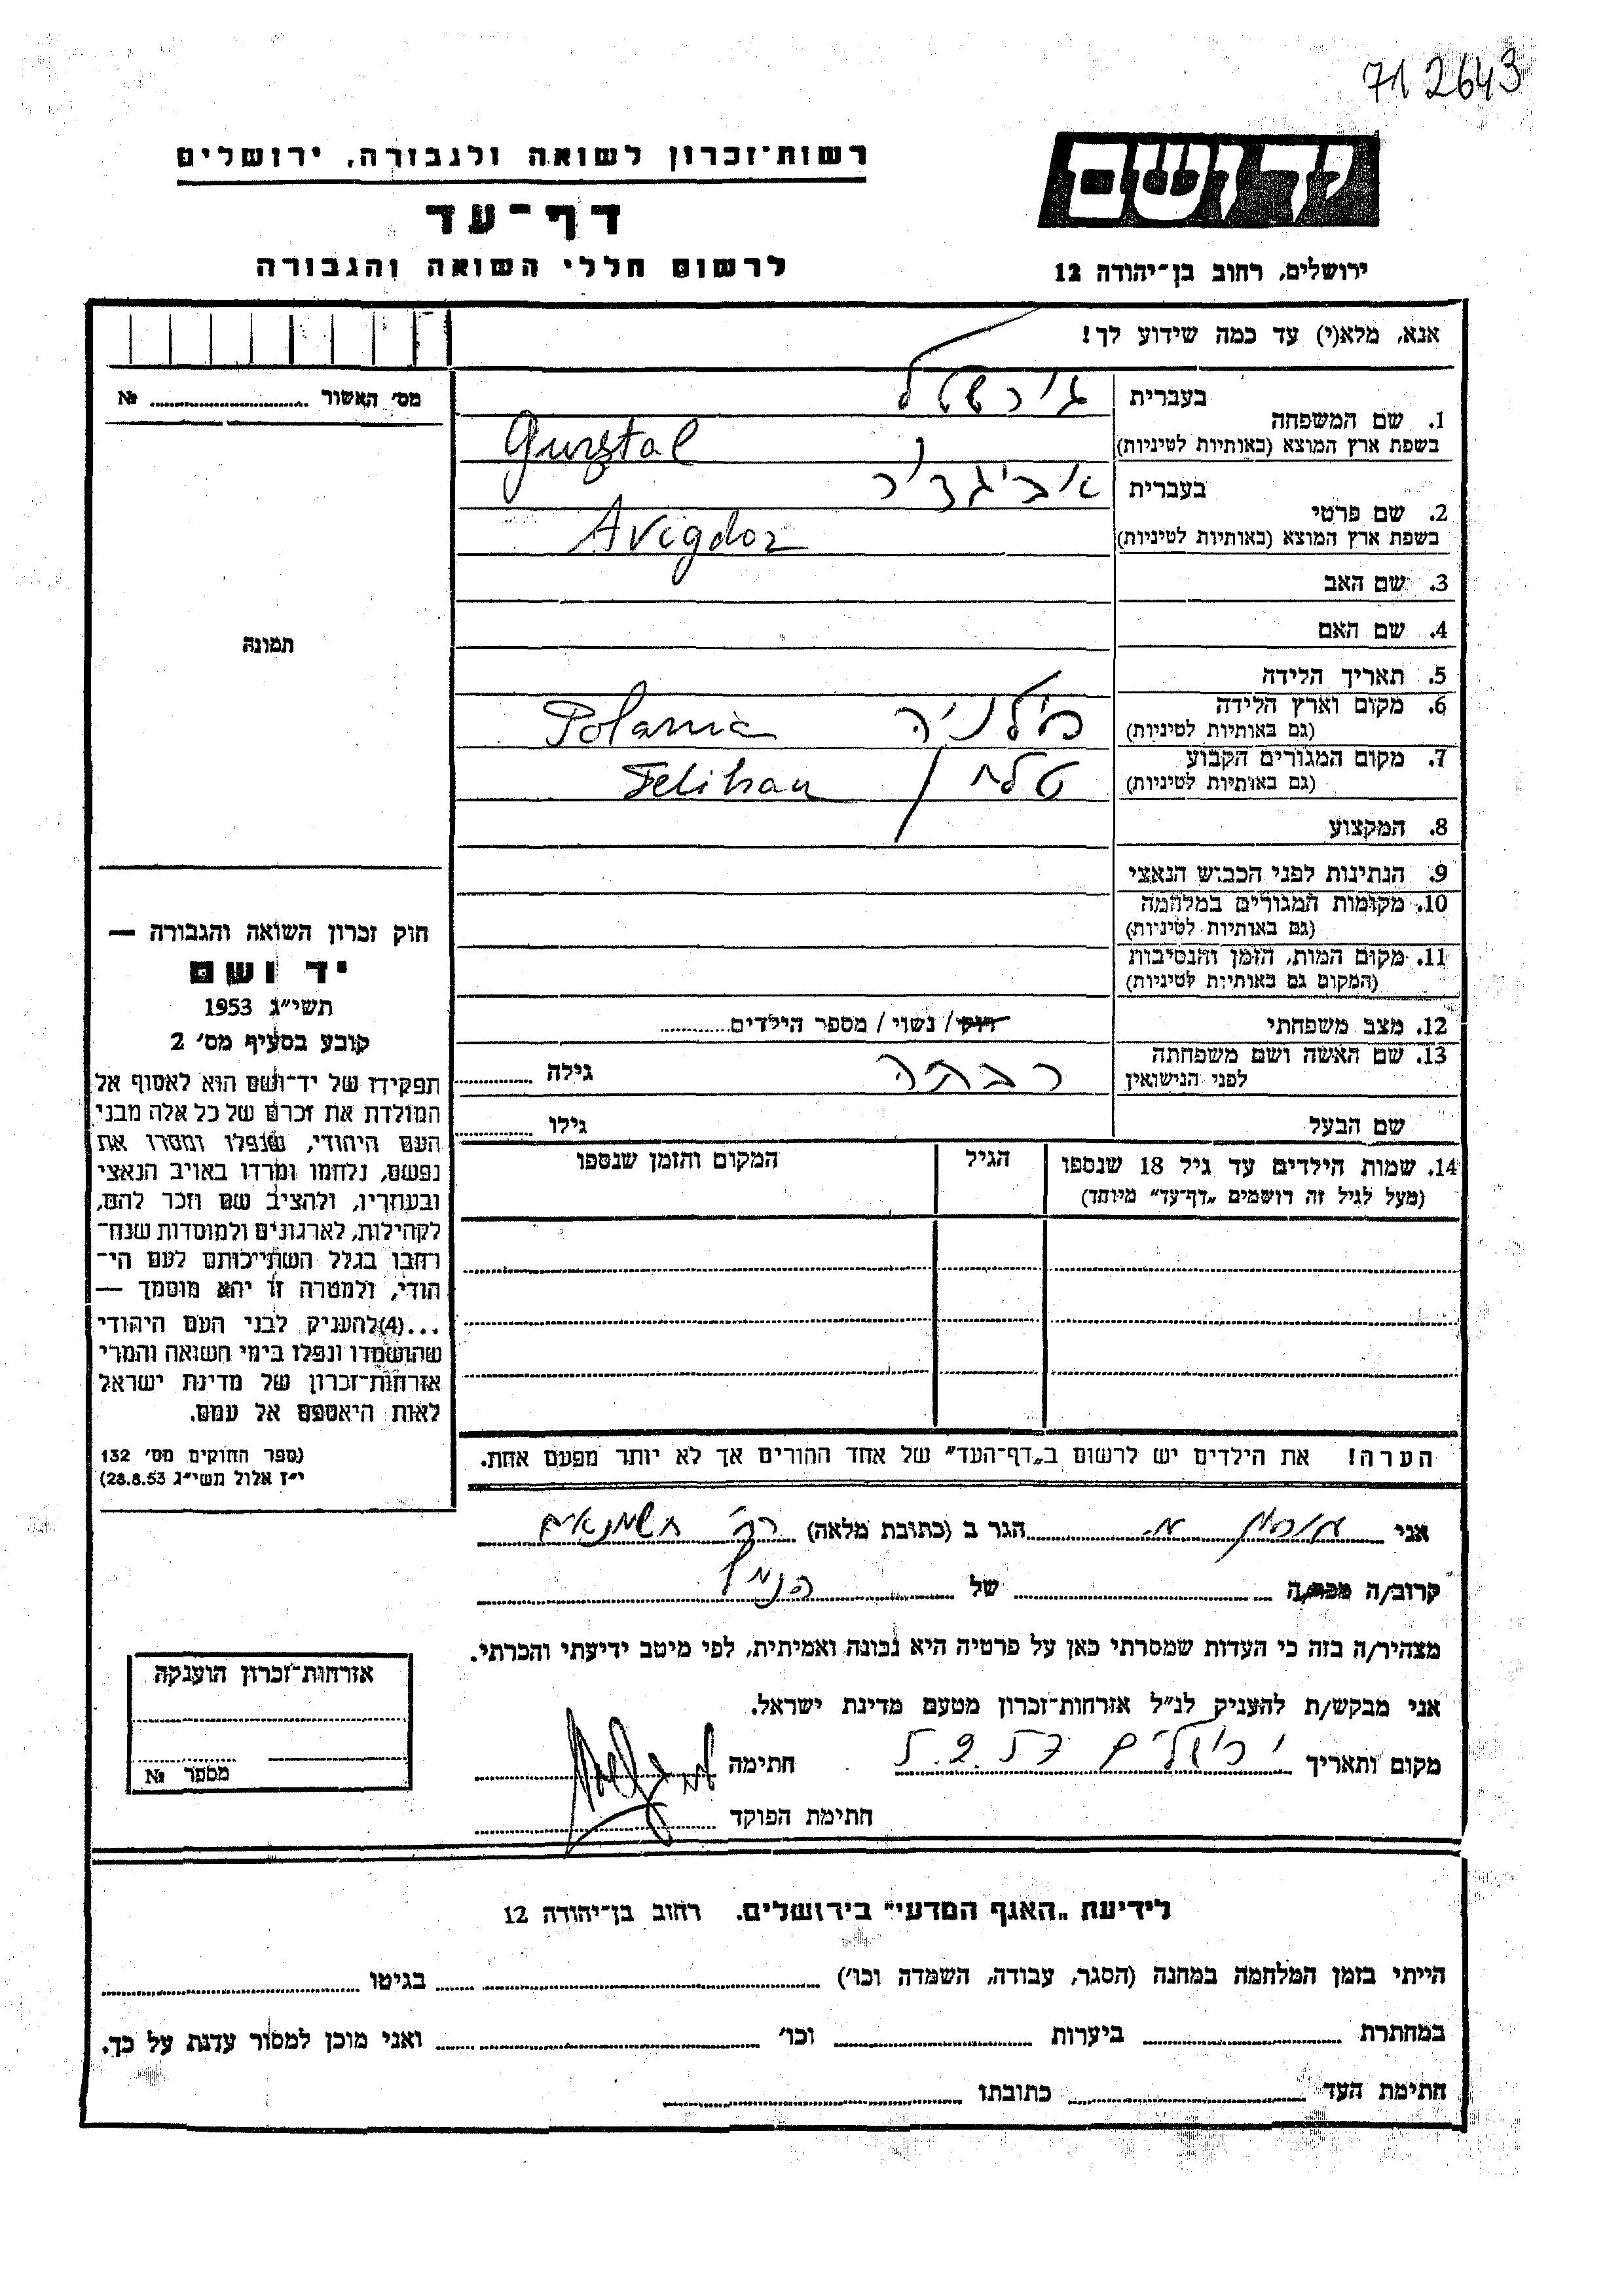 712643
יד ושם
רשות־זכרון לשואה ולגבורה, ירושלים
דף־עד
לרשום חללי השואה והגבורה
ירושלים, רחוב בן־יהודה 12
אנא, מלא(י) עד כמה שידוע לך!
מס' האשור № 
תמונה
1. שם המשפחה
בעברית
בשפת ארץ המוצא (באותיות לטיניות)
Gursztal
2. שם פרטי
בעברית אביגדור
בשפת ארץ המוצא (באותיות לטיניות)
Avigdor
3. שם האב
4. שם האם
5. תאריך הלידה
6. מקום וארץ הלידה פולניה Polania
(גם באותיות לטיניות)
7. מקום המגורים הקבוע
(גם באותיות לטיניות)
8. המקצוע
9. הנתינות לפני הכבוש הנאצי
10. מקומות המגורים במלחמה
(גם באותיות לטיניות)
11. מקום המות, הזמן והנסיבות
(המקום גם באותיות לטיניות)
12. מצב משפחתי רוק / נשוי / מספר הילדים
13. שם האשה ושם משפחתה
לפני הנישואין
גילה
שם הבעל גילו
14. שמות הילדים עד גיל 18 שנספו
(מעל לגיל זה רושמים „דף־עד" מיוחד)
הגיל
המקום והזמן שנספו
הערה! את הילדים יש לרשום ב„דף־העד" של אחד ההורים אך לא יותר מפעם אחת.
חוק זכרון השואה והגבורה —
יד ושם
תשי"ג 1953
קובע בסעיף מס' 2
תפקידו של יד־ושם הוא לאסוף אל
המולדת את זכרם של כל אלה מבני
העם היהודי, שנפלו ומסרו את
נפשם, נלחמו ומרדו באויב הנאצי
ובעוזריו, ולהציב שם וזכר להם,
לקהילות, לארגונים ולמוסדות שנח־
רחבו בגלל השתייכותם לעם הי־
הודי, ולמטרה זו יהא מוסמך —
...(4)להעניק לבני העם היהודי
שהושמדו ונפלו בימי השואה והמרי
אזרחות־זכרון של מדינת ישראל
לאות היאספם אל עמם.
(ספר החוקים מס' 132
י"ז אלול תשי"ג 28.8.53)
אני הגר ב (כתובת מלאה) רח' חשמונאים
קרוב/ה מכר/ה של הנ"ל
מצהיר/ה בזה כי העדות שמסרתי כאן על פרטיה היא נכונה ואמיתית, לפי מיטב ידיעתי והכרתי.
אני מבקש/ת להעניק לנ"ל אזרחות־זכרון מטעם מדינת ישראל.
מקום ותאריך ירושלים חתימה
חתימת הפוקד
אזרחות־זכרון הוענקה
מספר №
לידיעת „האגף המדעי" בירושלים. רחוב בן־יהודה 12
הייתי בזמן המלחמה במחנה (הסגר, עבודה, השמדה וכו') בגיטו
במחתרת ביערות וכו' ואני מוכן למסור עדות על כך.
חתימת העד כתובתו